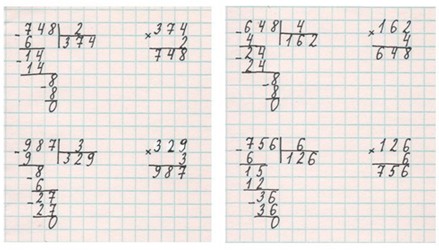 -748|2 ×374
6 374 2
-14 748
14
-8
8
0
-987|3 ×329
9 329 3
-8 987
6
-27
27
0
-648|4 ×162
4 162 4
-24 648
24
-8
8
0
-756|6 ×126
6 126 6
15 756
12
-36
36
0